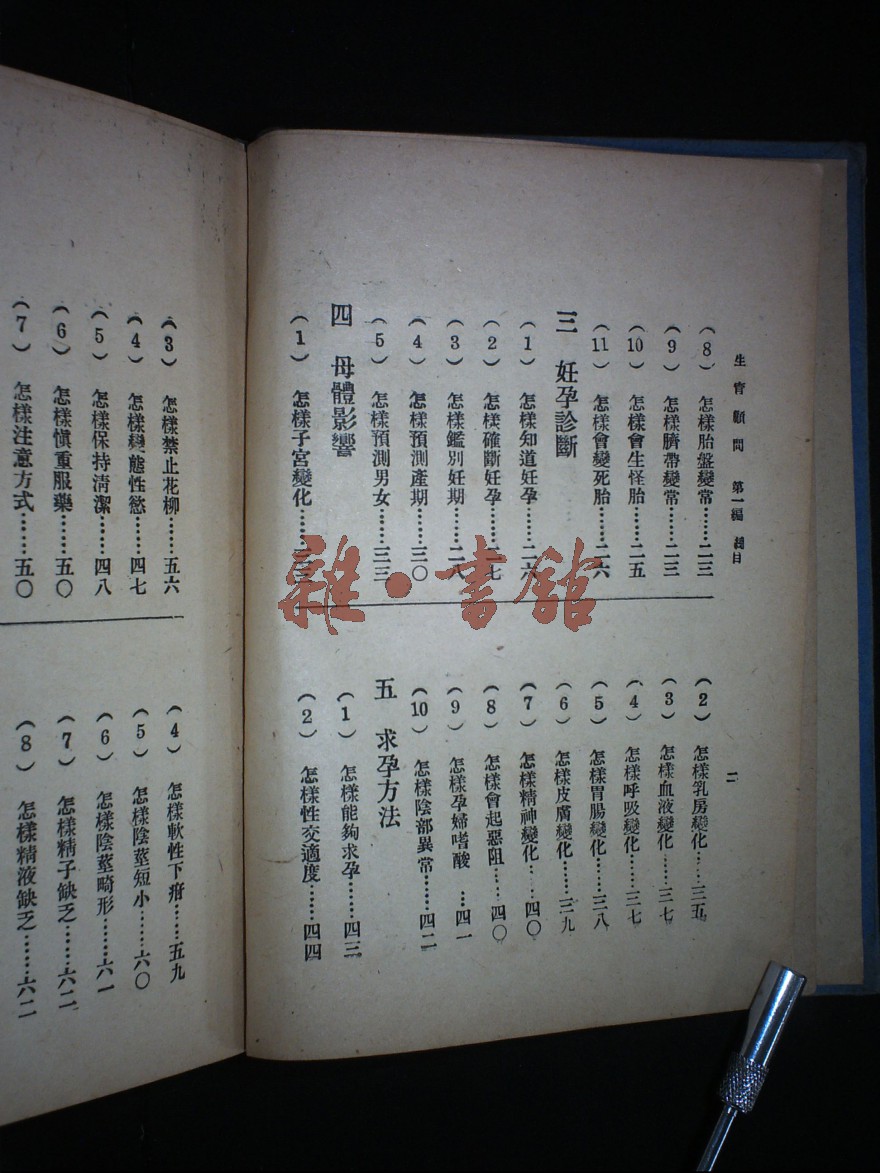 生育顧問 第一編 細目
二
(8) 怎樣胎盤變常……二三
(9) 怎樣臍帶變常……二三
(10) 怎樣會生怪胎……二五
(11) 怎樣會變死胎……二六
三 妊孕診斷
(1) 怎樣知道妊孕……二六
(2) 怎樣確斷妊孕……二七
(3) 怎樣鑑別妊期……二八
(4) 怎樣預測產期……三〇
(5) 怎樣預測男女……三三
四 母體影響
(1) 怎樣子宮變化……三三
(2) 怎樣乳房變化……三五
(3) 怎樣血液變化……三七
(4) 怎樣呼吸變化……三七
(5) 怎樣胃腸變化……三八
(6) 怎樣皮膚變化……三九
(7) 怎樣精神變化……四〇
(8) 怎樣會起惡阻……四〇
(9) 怎樣孕婦嗜酸…四一
(10) 怎樣陰部異常……四二
五 求孕方法
(1) 怎樣能夠求孕……四三
(2) 怎樣性交適度……四四
(3) 怎樣禁止花柳……五六
(4) 怎樣變態性慾……四七
(5) 怎樣保持淸潔……四八
(6) 怎樣愼重服藥……五〇
(7) 怎樣注意方式……五〇
(4) 怎樣軟性下疳……五九
(5) 怎樣陰莖短小……六〇
(6) 怎樣陰莖畸形……六一
(7) 怎樣精子缺乏……六二
(8) 怎樣精液缺乏……六二
雜·書舘